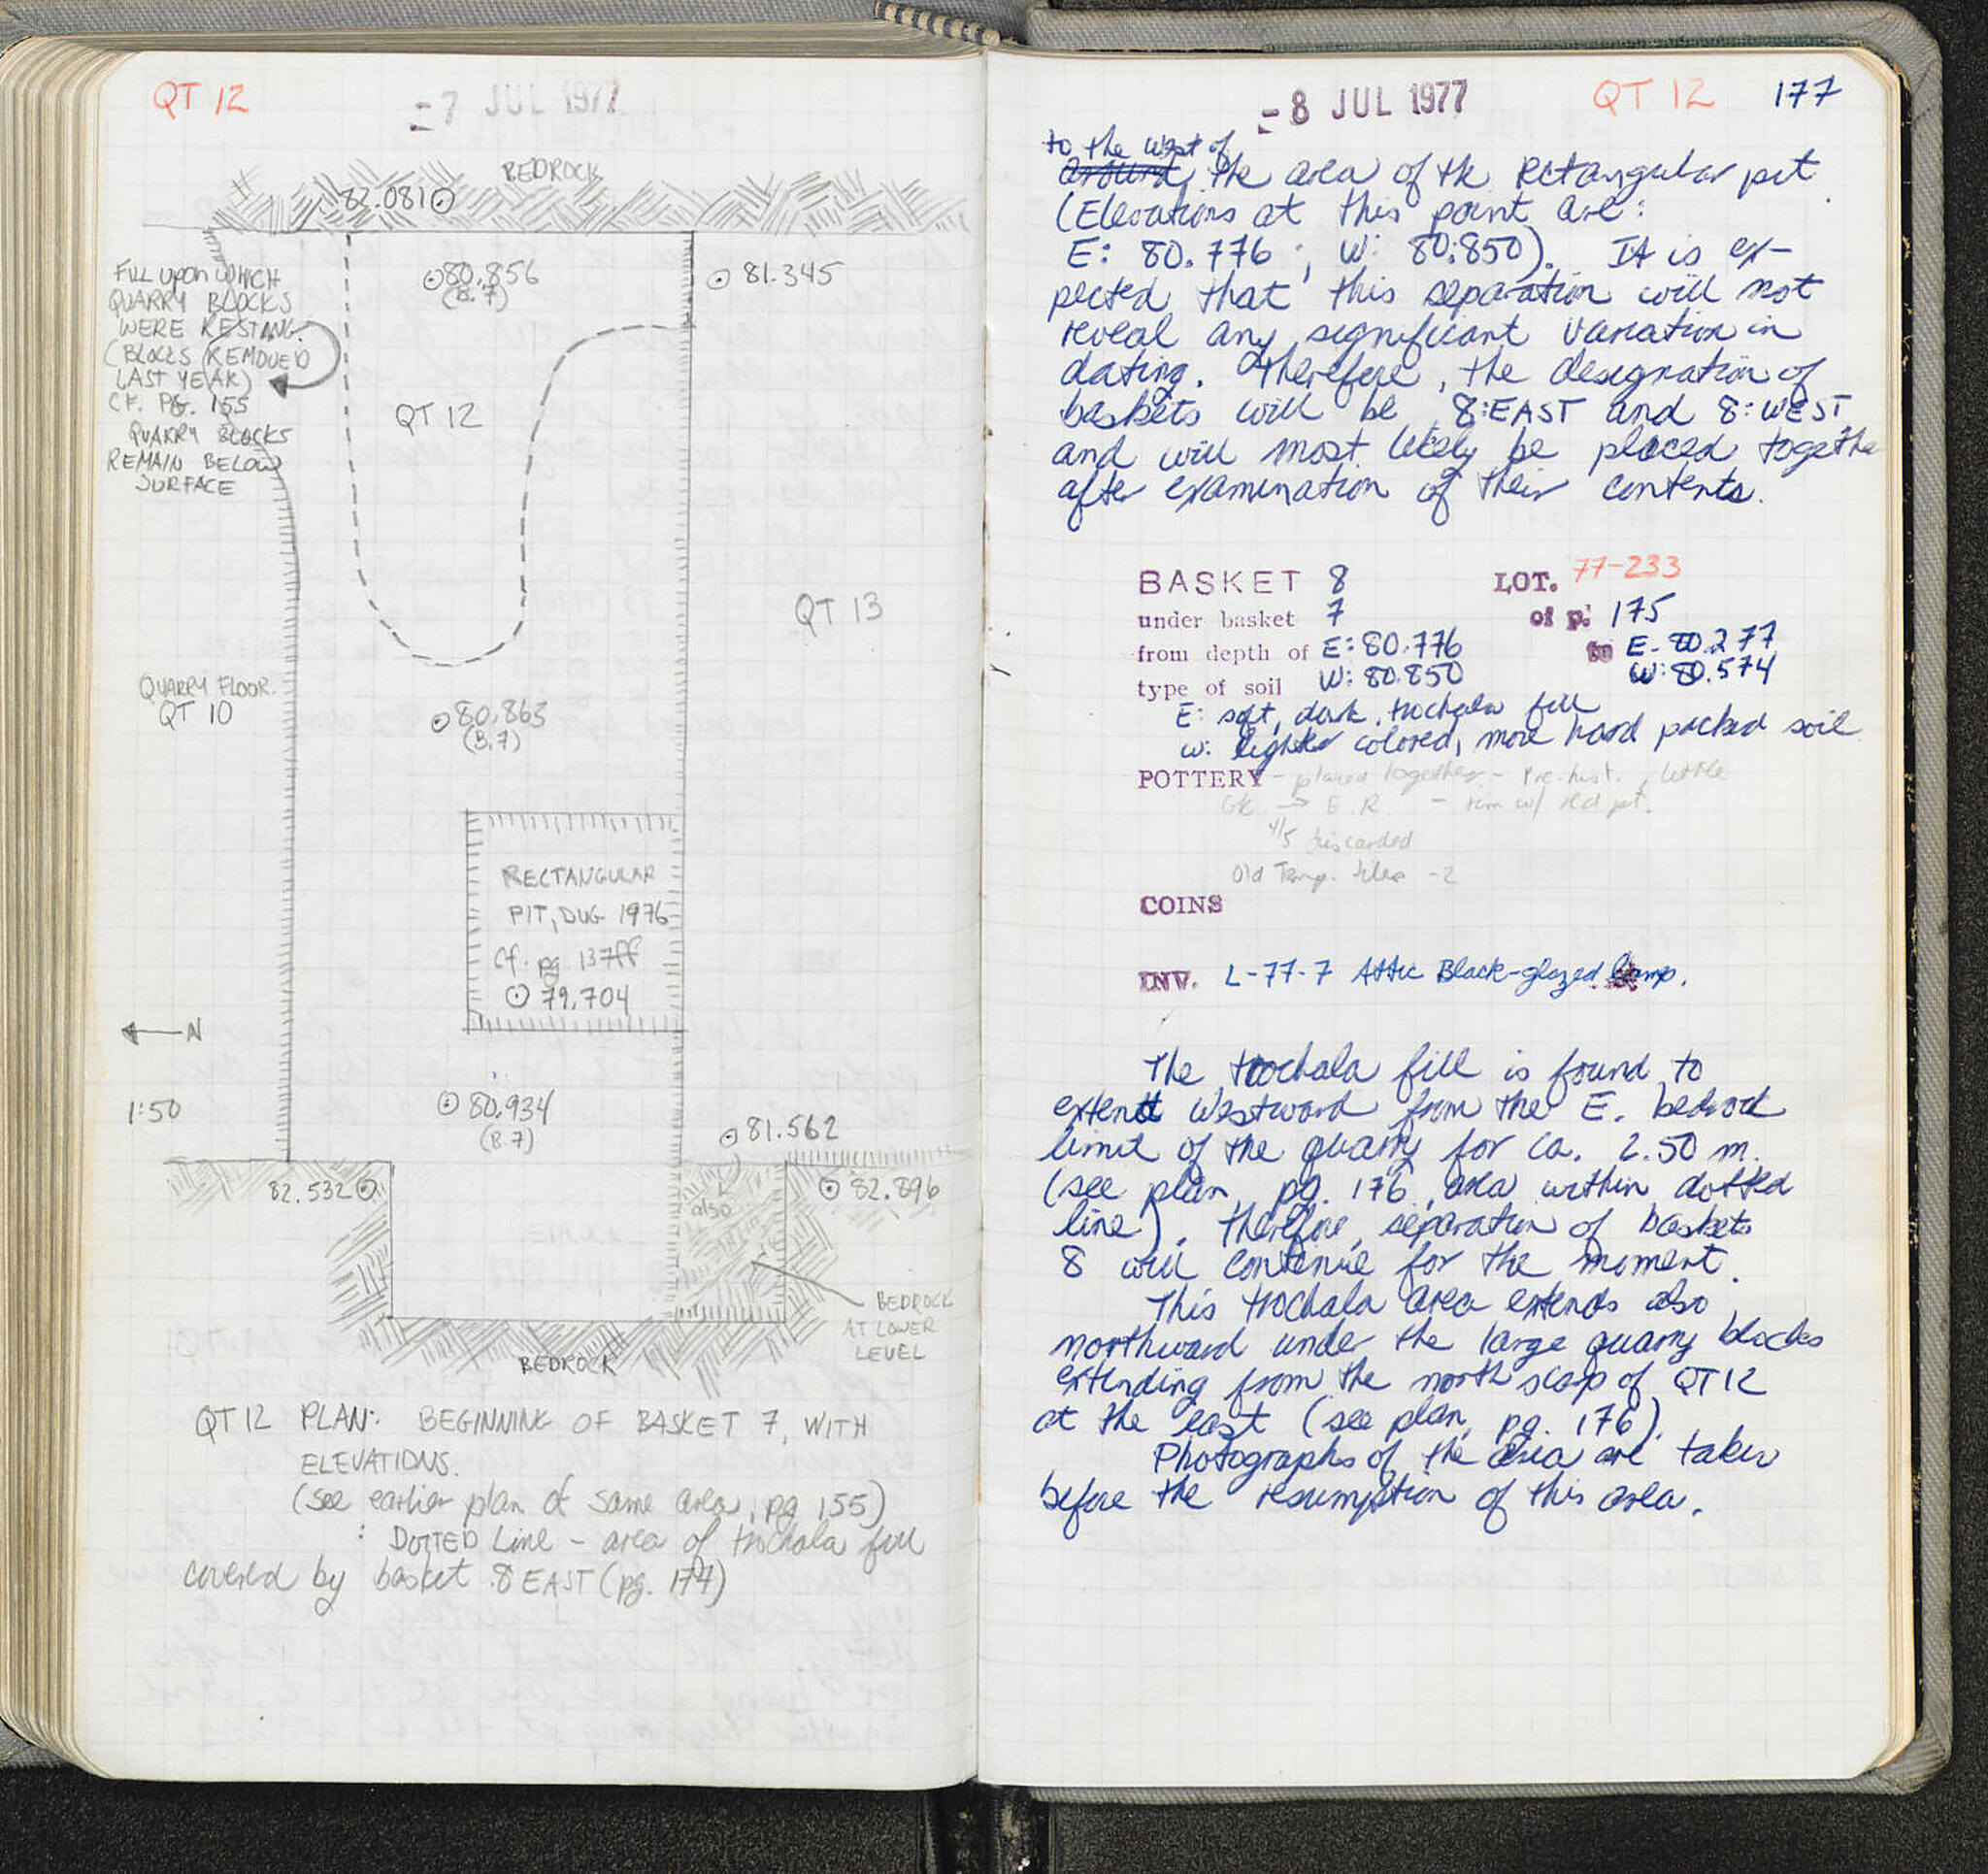 QT 12
-7 JUL 1977
BEDROCK
82.081
FILL UPON WHICH
QUARRY BLOCKS
WERE RESTING.
(BLOCKS REMOVED
LAST YEAR)
CF. PG. 155
QUARRY BLOCKS
REMAIN BELOW
SURFACE
80.856
(B.7)
81.345
QT 12
QT 13
QUARRY FLOOR.
QT 10
80.863
(B.7)
RECTANGULAR
PIT, DUG 1976
Cf. pg. 137ff
79.704
N
1:50
80.934
(B.7)
81.562
82.532
also
82.896
BEDROCK
AT LOWER
LEVEL
BEDROCK
QT 12 PLAN: BEGINNING OF BASKET 7, WITH
ELEVATIONS.
(see earlier plan of same area, pg 155)
: DOTTED Line - area of trochala fill
covered by basket 8 EAST (pg. 177)
-8 JUL 1977
QT 12
177
to the west of
around the area of the rectangular pit.
(Elevations at this point are:
E: 80.776 ; W: 80.850). It is ex-
pected that this separation will not
reveal any significant variation in
dating. Therefore, the designation of
baskets will be 8:EAST and 8:WEST
and will most likely be placed together
after examination of their contents.
BASKET 8 LOT. 77-233
under basket 7 of p. 175
from depth of E: 80.776 to E- 80.277
W: 80.850 W: 80.574
type of soil
E: soft, dark, trochala fill
W: lighter colored, more hard packed soil
POTTERY - placed together - Pre-hist., little
Gk. → E.R. - rim w/ red pt.
4/5 discarded
Old Temp. tiles -2
COINS
INV. L-77-7 Attic Black-glazed lamp.
The trochala fill is found to
extend westward from the E. bedrock
limit of the quarry for ca. 2.50 m.
(see plan, pg. 176, area within dotted
line). Therefore, separation of baskets
8 will continue for the moment.
This trochala area extends also
northward under the large quarry blocks
extending from the north scarp of QT 12
at the east (see plan, pg. 176).
Photographs of the area are taken
before the resumption of this area.